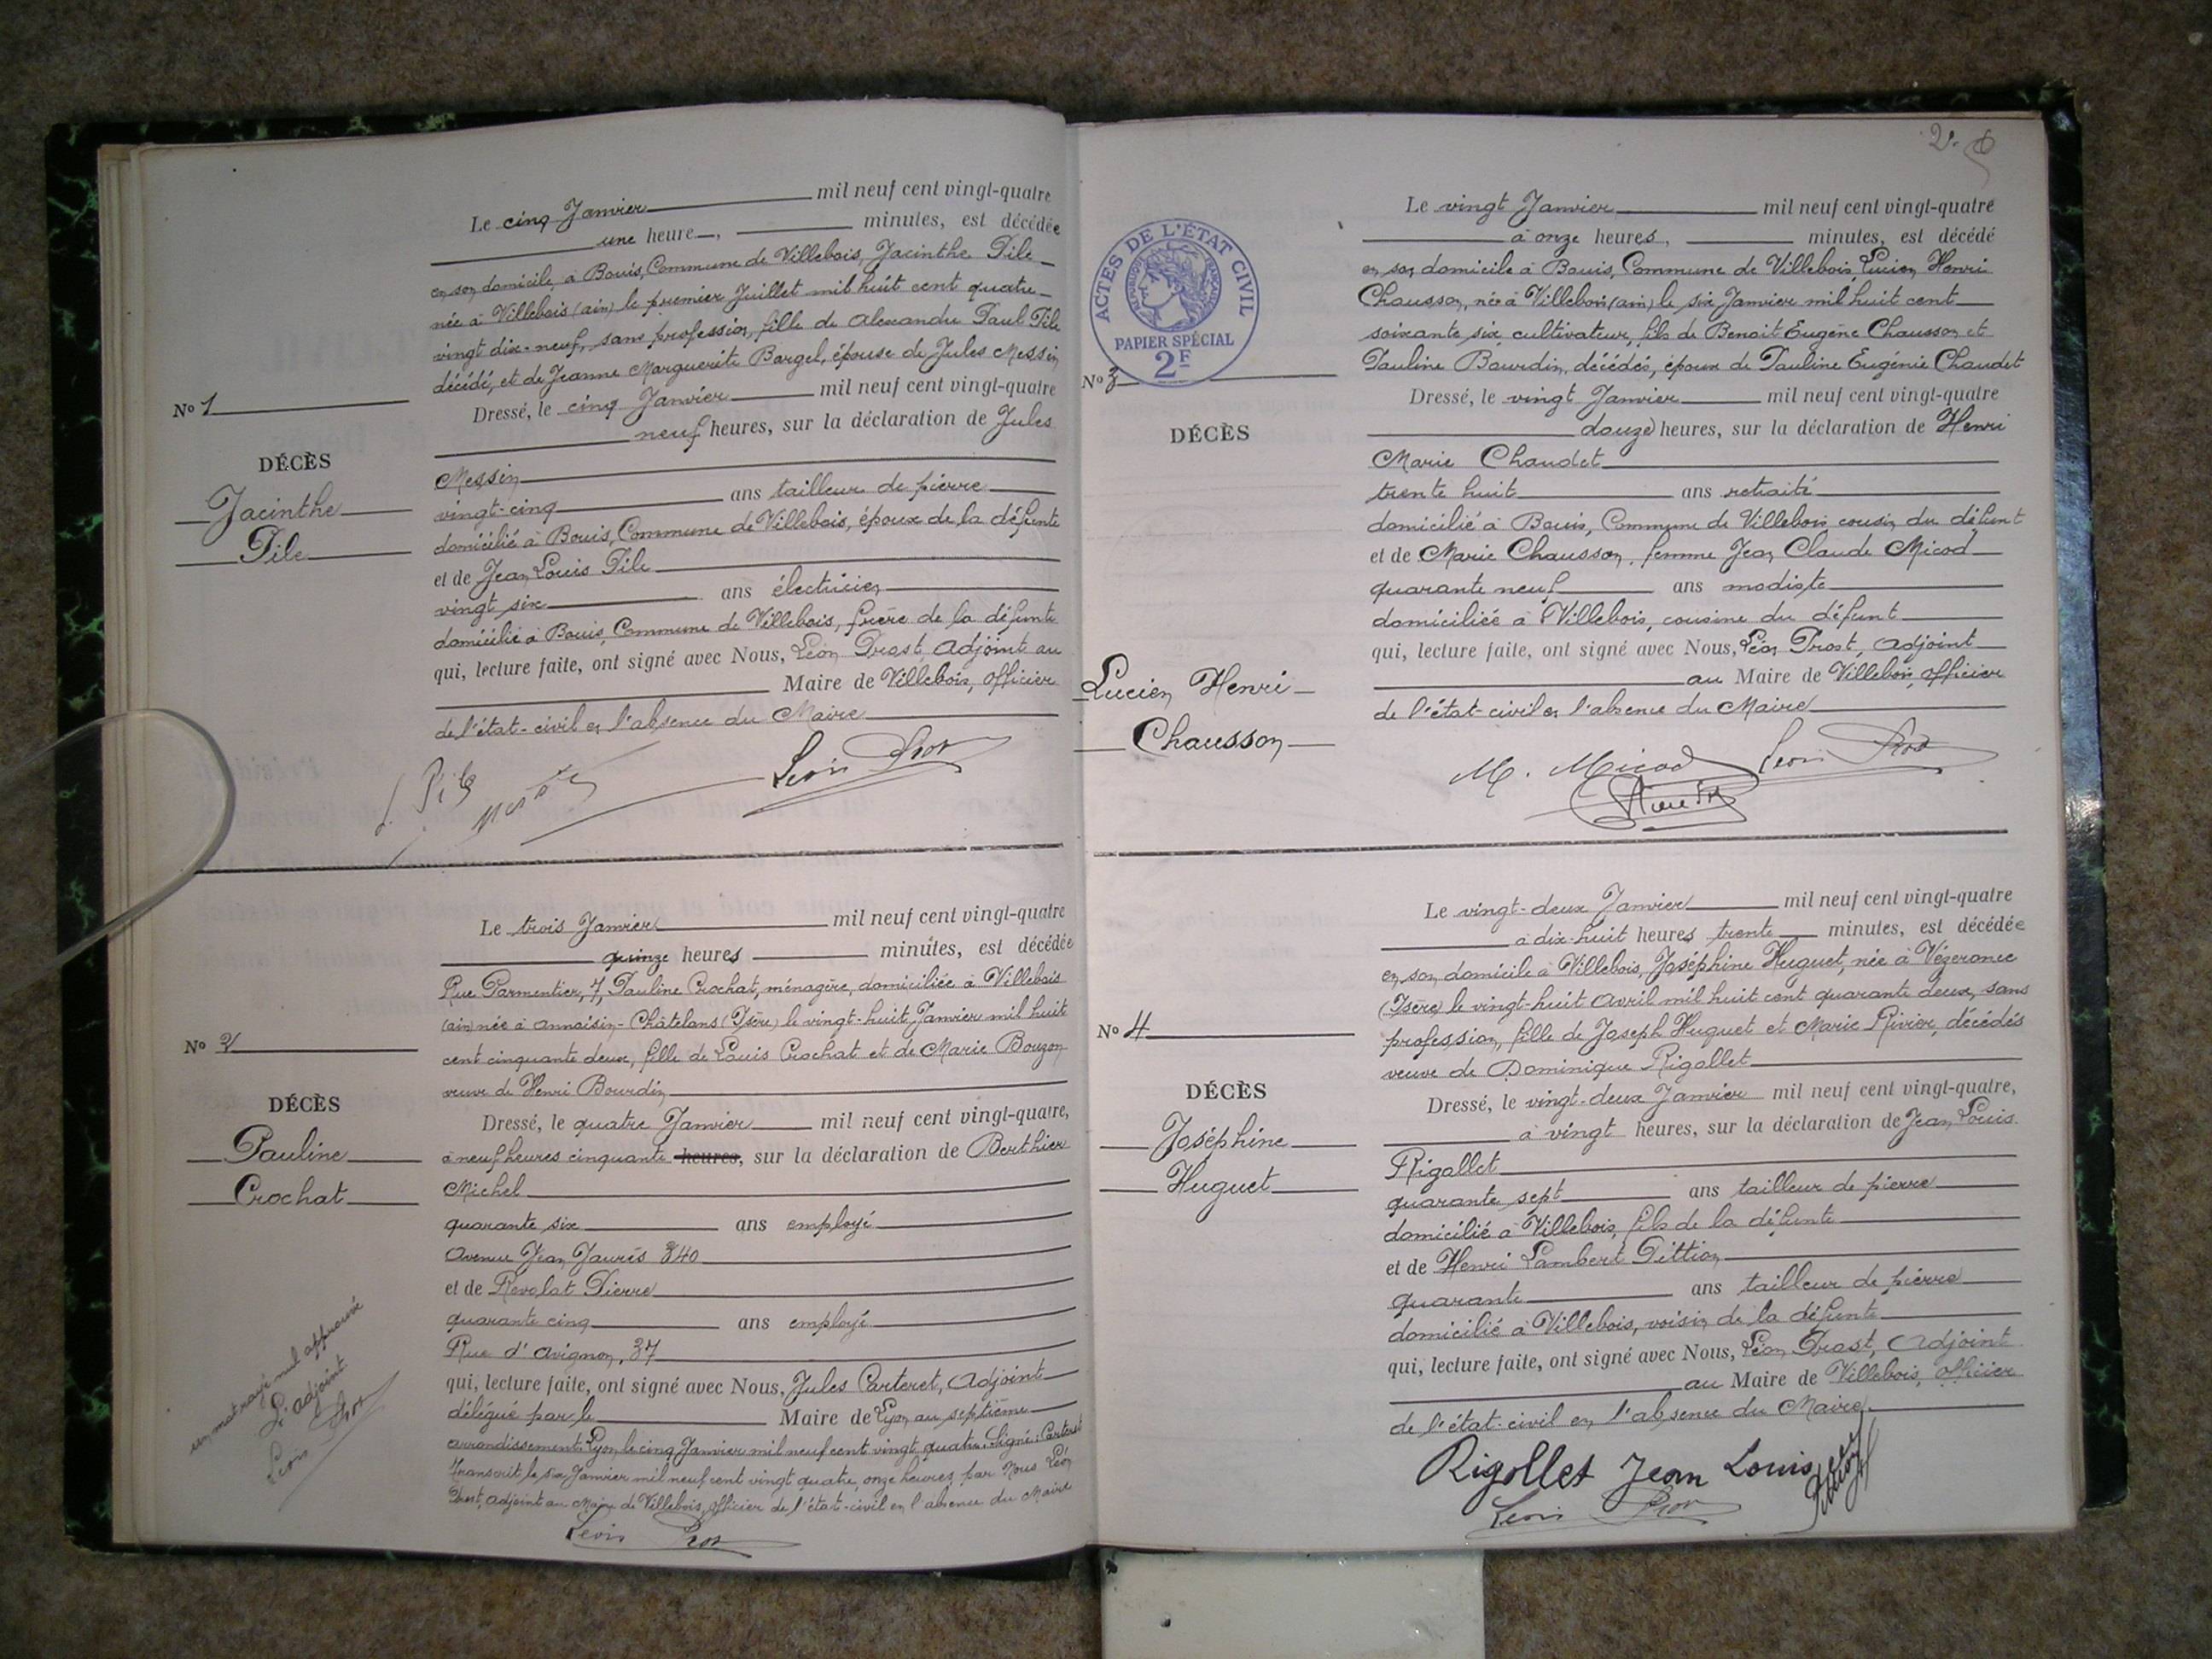 Le cinq Janvier mil neuf cent vingt-quatre
une heure, minutes, est décédée
en son domicile, à Bouis, Commune de Villebois, Jacinthe Pile
née à Villebois (ain) le premier Juillet mil huit cent quatre
vingt dix-neuf, sans profession, fille de Alexandre Paul Pile
décédé, et de Jeanne Marguerite Bargel, épouse de Jules Messin
No 1
Dressé, le cinq Janvier mil neuf cent vingt-quatre
neuf heures, sur la déclaration de Jules
DÉCÈS
Jacinthe
Pile
Messin
vingt-cinq ans tailleur de pierre
domicilié à Bouis, Commune de Villebois, époux de la défunte
et de Jean Louis Pile
vingt six ans électricien
domicilié à Bouis, Commune de Villebois, frère de la défunte
qui, lecture faite, ont signé avec Nous, Léon Prost, Adjoint au
Maire de Villebois, officier
de l'état-civil en l'absence du Maire
L. Pile
Léon Prost
Le trois Janvier mil neuf cent vingt-quatre
quinze heures minutes, est décédée
Rue Parmentier, 7, Pauline Crochat, ménagère, domiciliée à Villebois
(ain) née à Annoisin-Châtelans (Isère) le vingt-huit Janvier mil huit
cent cinquante deux, fille de Louis Crochat et de Marie Bouzon
veuve de Henri Bourdin
No 2
DÉCÈS
Pauline
Crochat
Dressé, le quatre Janvier mil neuf cent vingt-quatre,
à neuf heures cinquante heures, sur la déclaration de Berthier
Michel
quarante six ans employé
Avenue Jean Jaurès 340
et de Revolat Pierre
quarante cinq ans employé
Rue d'Avignon, 37
qui, lecture faite, ont signé avec Nous, Jules Carteret, Adjoint
délégué par le Maire de Lyon au septième
arrondissement. Lyon, le cinq Janvier mil neuf cent vingt quatre. Signé: Carteret
Transcrit le six Janvier mil neuf cent vingt quatre, onze heures, par Nous Léon
Prost, Adjoint au Maire de Villebois, officier de l'état-civil en l'absence du Maire
Léon Prost
un mot rayé nul approuvé
L'adjoint
Léon Prost
2.
ACTES DE L'ÉTAT CIVIL
RÉPUBLIQUE FRANÇAISE
PAPIER SPÉCIAL
2F
No 3
DÉCÈS
Lucien Henri
Chausson
Le vingt Janvier mil neuf cent vingt-quatre
à onze heures, minutes, est décédé
en son domicile à Bouis, Commune de Villebois, Lucien Henri
Chausson, né à Villebois (ain) le six Janvier mil huit cent
soixante six, cultivateur, fils de Benoit Eugène Chausson et
Pauline Bourdin, décédés, époux de Pauline Eugénie Chaudet
Dressé, le vingt Janvier mil neuf cent vingt-quatre
douze heures, sur la déclaration de Henri
Marie Chaudet
trente huit ans retraité
domicilié à Bouis, Commune de Villebois cousin du défunt
et de Marie Chausson, femme Jean Claude Micod
quarante neuf ans modiste
domiciliée à Villebois, cousine du défunt
qui, lecture faite, ont signé avec Nous, Léon Prost, Adjoint
au Maire de Villebois, officier
de l'état-civil en l'absence du Maire
M. Micod Léon Prost
Le vingt-deux Janvier mil neuf cent vingt-quatre
à dix-huit heures trente minutes, est décédée
en son domicile à Villebois, Joséphine Huguet, née à Vézeronce
(Isère) le vingt-huit Avril mil huit cent quarante deux, sans
profession, fille de Joseph Huguet et Marie Rivier, décédés
veuve de Dominique Rigollet
No 4
DÉCÈS
Joséphine
Huguet
Dressé, le vingt-deux Janvier mil neuf cent vingt-quatre,
à vingt heures, sur la déclaration de Jean Louis
Rigollet
quarante sept ans tailleur de pierre
domicilié à Villebois, fils de la défunte
et de Henri Lambert Pittion
quarante ans tailleur de pierre
domicilié à Villebois, voisin de la défunte
qui, lecture faite, ont signé avec Nous, Léon Prost, Adjoint
au Maire de Villebois, officier
de l'état-civil en l'absence du Maire.
Rigollet Jean Louis
Léon Prost